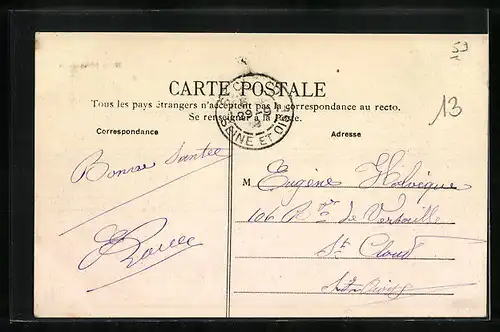 59
13
CARTE POSTALE
Tous les pays étrangers n'acceptent pas la correspondance au recto.
Se renseigner à la Poste.
SEINE ET OISE
Correspondance
Adresse
Bonne Santée
M Eugène
106 R de Versaille
St Cloud